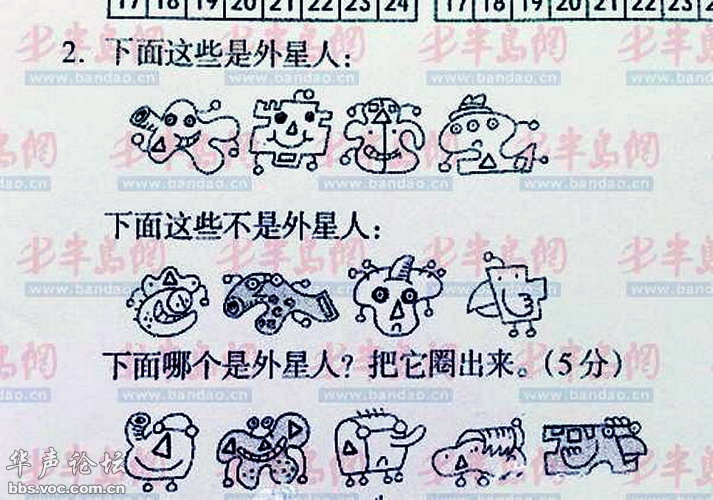 17 18 19 20 21 22 23 24 17 18 19 20 21 22 23
2. 下面这些是外星人:
下面这些不是外星人:
下面哪个是外星人?把它圈出来。(5分)
半岛网
www.bandao.cn
华声论坛
bbs.voc.com.cn